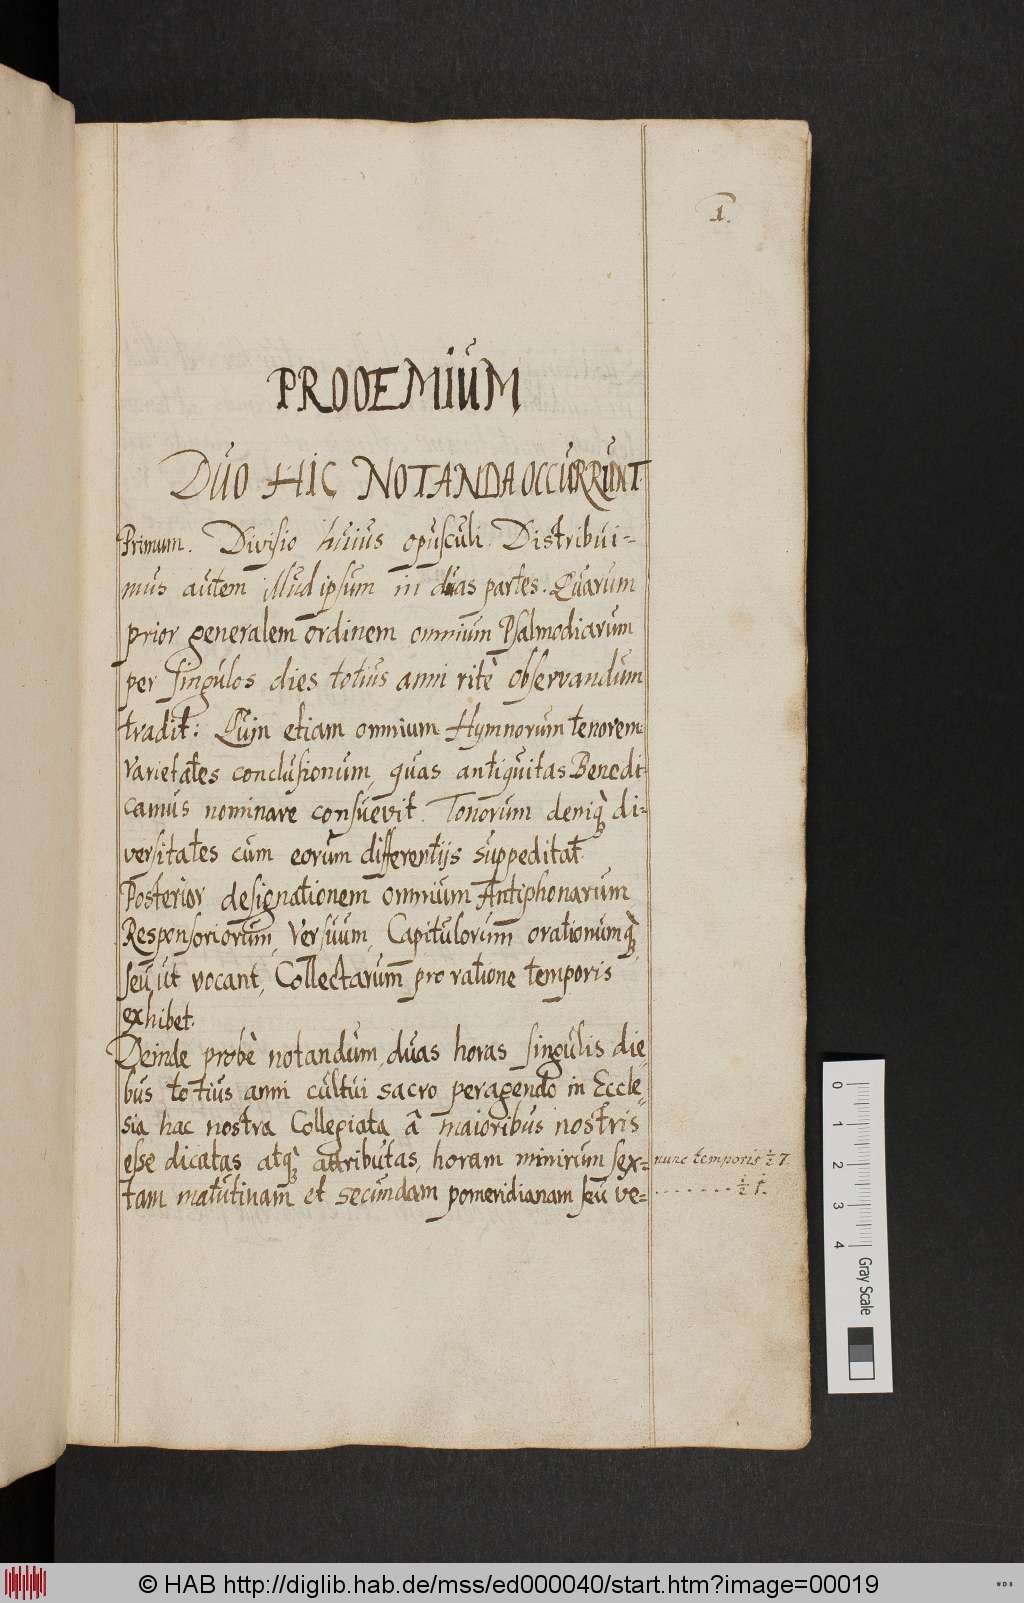 1.
PROOEMIUM
DUO HIC NOTANDA OCCURRUNT
Primum. Divisio huius opusculi. Distribui-
mus autem illud ipsum in duas partes. Quarum
prior generalem ordinem omnium Psalmodiarum
per singulos dies totius anni ritè observandum
tradit: Quin etiam omnium Hymnorum tenorem
varietates conclusionum, quas antiquitas Benedi-
camus nominare consuevit. Tonorum deniq̀ di-
versitates cum eorum differentijs suppeditat.
Posterior designationem omnium Antiphonarum
Responsoriorum, Versuum, Capitulorum orationumq̀,
seu, ut vocant, Collectarum pro ratione temporis
exhibet.
Deinde probè notandum, duas horas singulis die-
bus totius anni cultui sacro peragendo in Eccle-
sia hac nostra Collegiata â maioribus nostris
esse dicatas atq̀ attributas, horam minirum sex-
nunc temporis ½ 7.
tam matutinam et secundam pomeridianam seu ve-
. . . . . . . ½ 1.
0 1 2 3 4 Gray Scale
© HAB http://diglib.hab.de/mss/ed000040/start.htm?image=00019